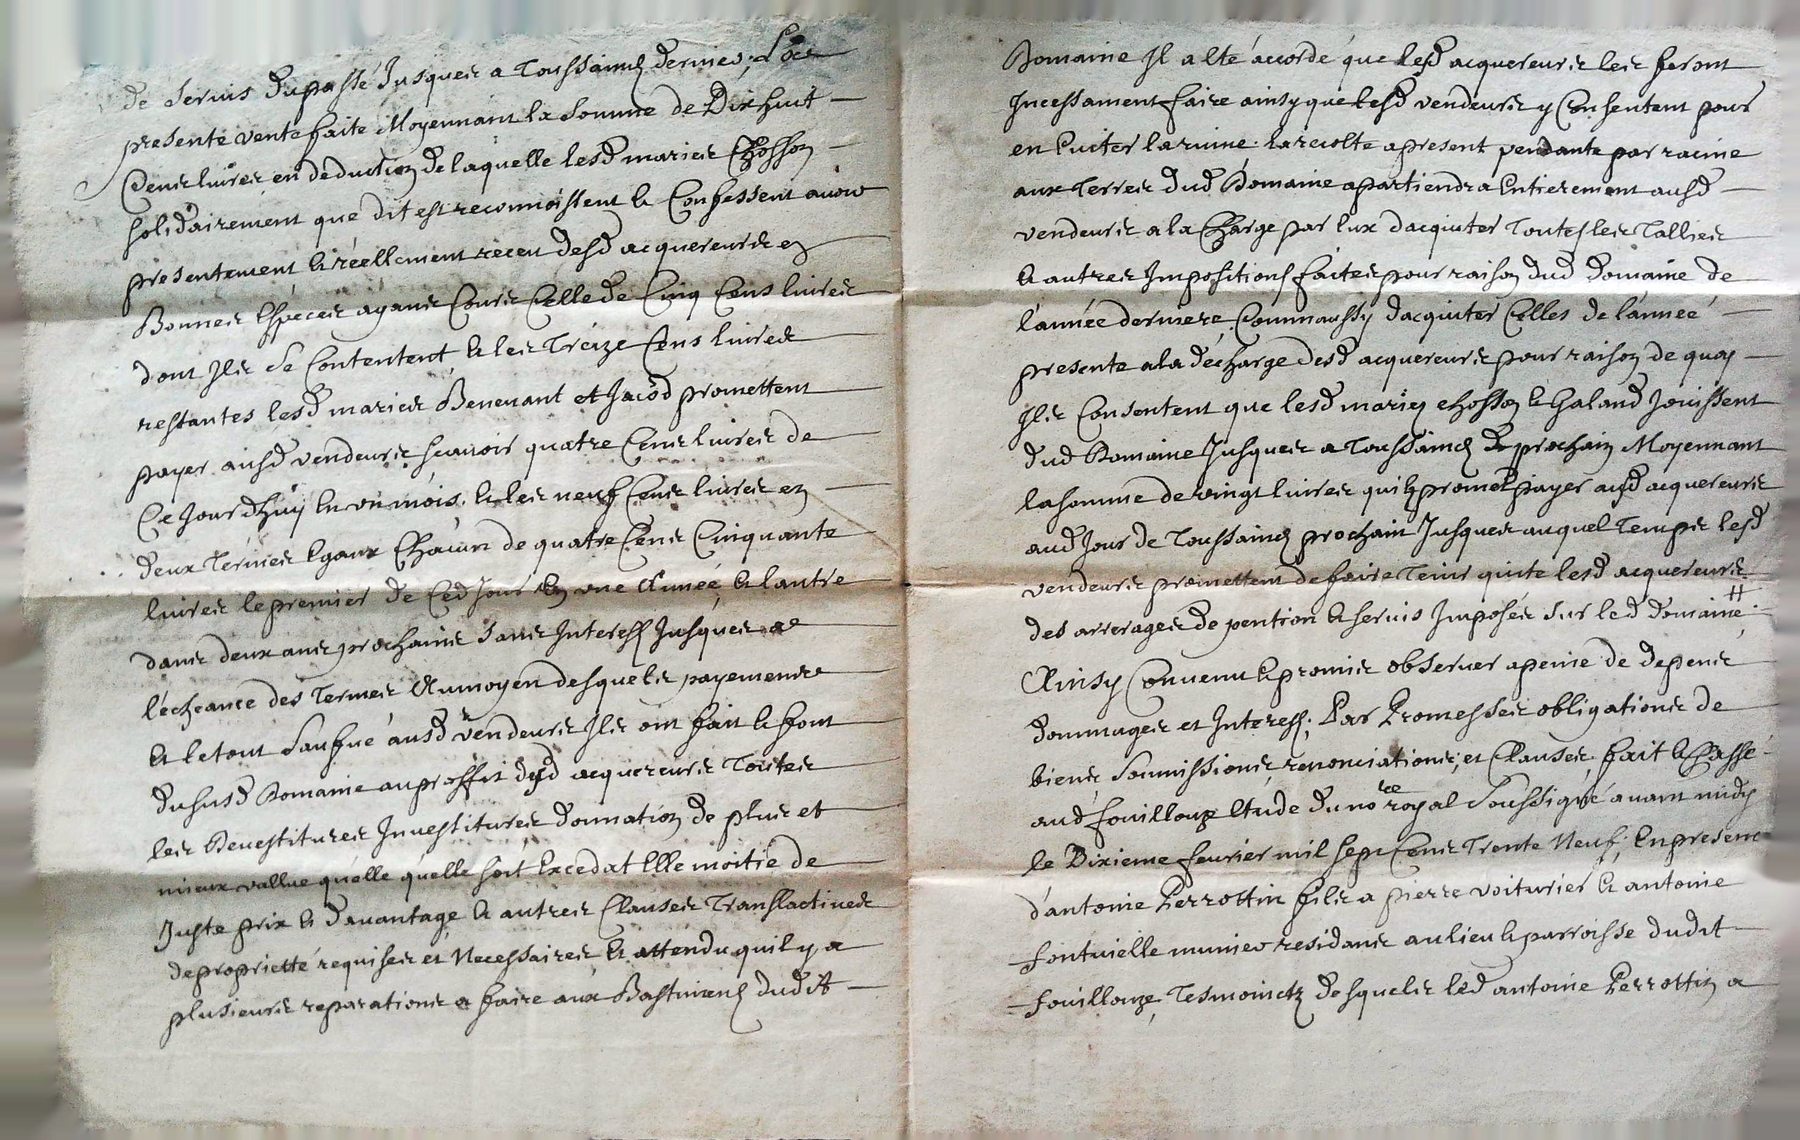 de servis du passé Jusques a Toussainct dernier, La
presente vente faite Moyennant la somme de Dix huit
Cens livres en deduction de laquelle lesd mariés Chosson
solidairement que dit est reconnoissent & Confessent avoir
presentement & réellement receu desd acquereurs en
Bonnes Espéces ayans Cours Celle de Cinq Cens livres
dont Ils se Contentent & les Tréize Cens livres
restantes lesd mariés Benevant et Jacod promettent
payer ausd vendeurs scavoir quatre Cens livres de
Ce Jourdhuy en un mois, & les neuf Cens livres en
deux Termes Egaux Chacun de quatre Cens Cinquante
livres le premier de Ced Jour en une Année, & lautre
dans deux ans prochains sans Interest Jusques a
l'écheance des Termes Au moyen desquels payemens
& le tout sauf né ausd vendeurs Ils ont fait & font
du susd Domaine au proffit desd acquereurs Toutes
les Devestitures Investitures donnation de plus et
mieux vallue quélle quélle soit Excedat Elle moitié de
Juste prix & davantage & autres Clauses Translactives
de proprietté requises et Necessaires & attendu quil y a
plusieurs reparations a faire aux Bastimens dudit
Domaine Il a Eté accordé que lesd acquereurs les feront
Incessament faire ainsy que lesd vendeurs y Consentent pour
en Eviter la ruine. la recolte a present pendante par racine
aux Terres dud Domaine apartiendra Entierement ausd
vendeurs a la Charge par Eux dacquiter Toutes les Tallies
& autres Impositions faites pour raison dud domaine de
l'année derniere Comm'aussy dacquiter Celles de l'année
presente a la décharge desd acquereurs pour raison de quoy
Ils Consentent que lesd mariés chosson & Galand Jouissent
dud Domaine Jusques a Toussainct prochain Moyennant
la somme de vingt livres quils promet payer ausd acquereurs
aud Jour de Toussainct prochain Jusques auquel Temps lesd
vendeurs promettent de faire Tenir quite lesd acquereurs
des arrerages de pention & servis Imposés sur led domaine.
Ainsy Convenu & promis observer a peine de depens
dommages et Interests, Par Promesses obligations de
biens, soumissions, renonciations, et Clauses, fait & Passé
aud fouillouze Etude du no.re royal soussigné avant midy
le Dixieme fevrier mil sept Cens Trente Neuf, En presence
d'antoine Perrottin fils a pierre voiturier & antoine
fontvielle munier residans au lieu & parroisse dudit
fouillouze, Tesmoinctz desquels led antoine Perrottin a